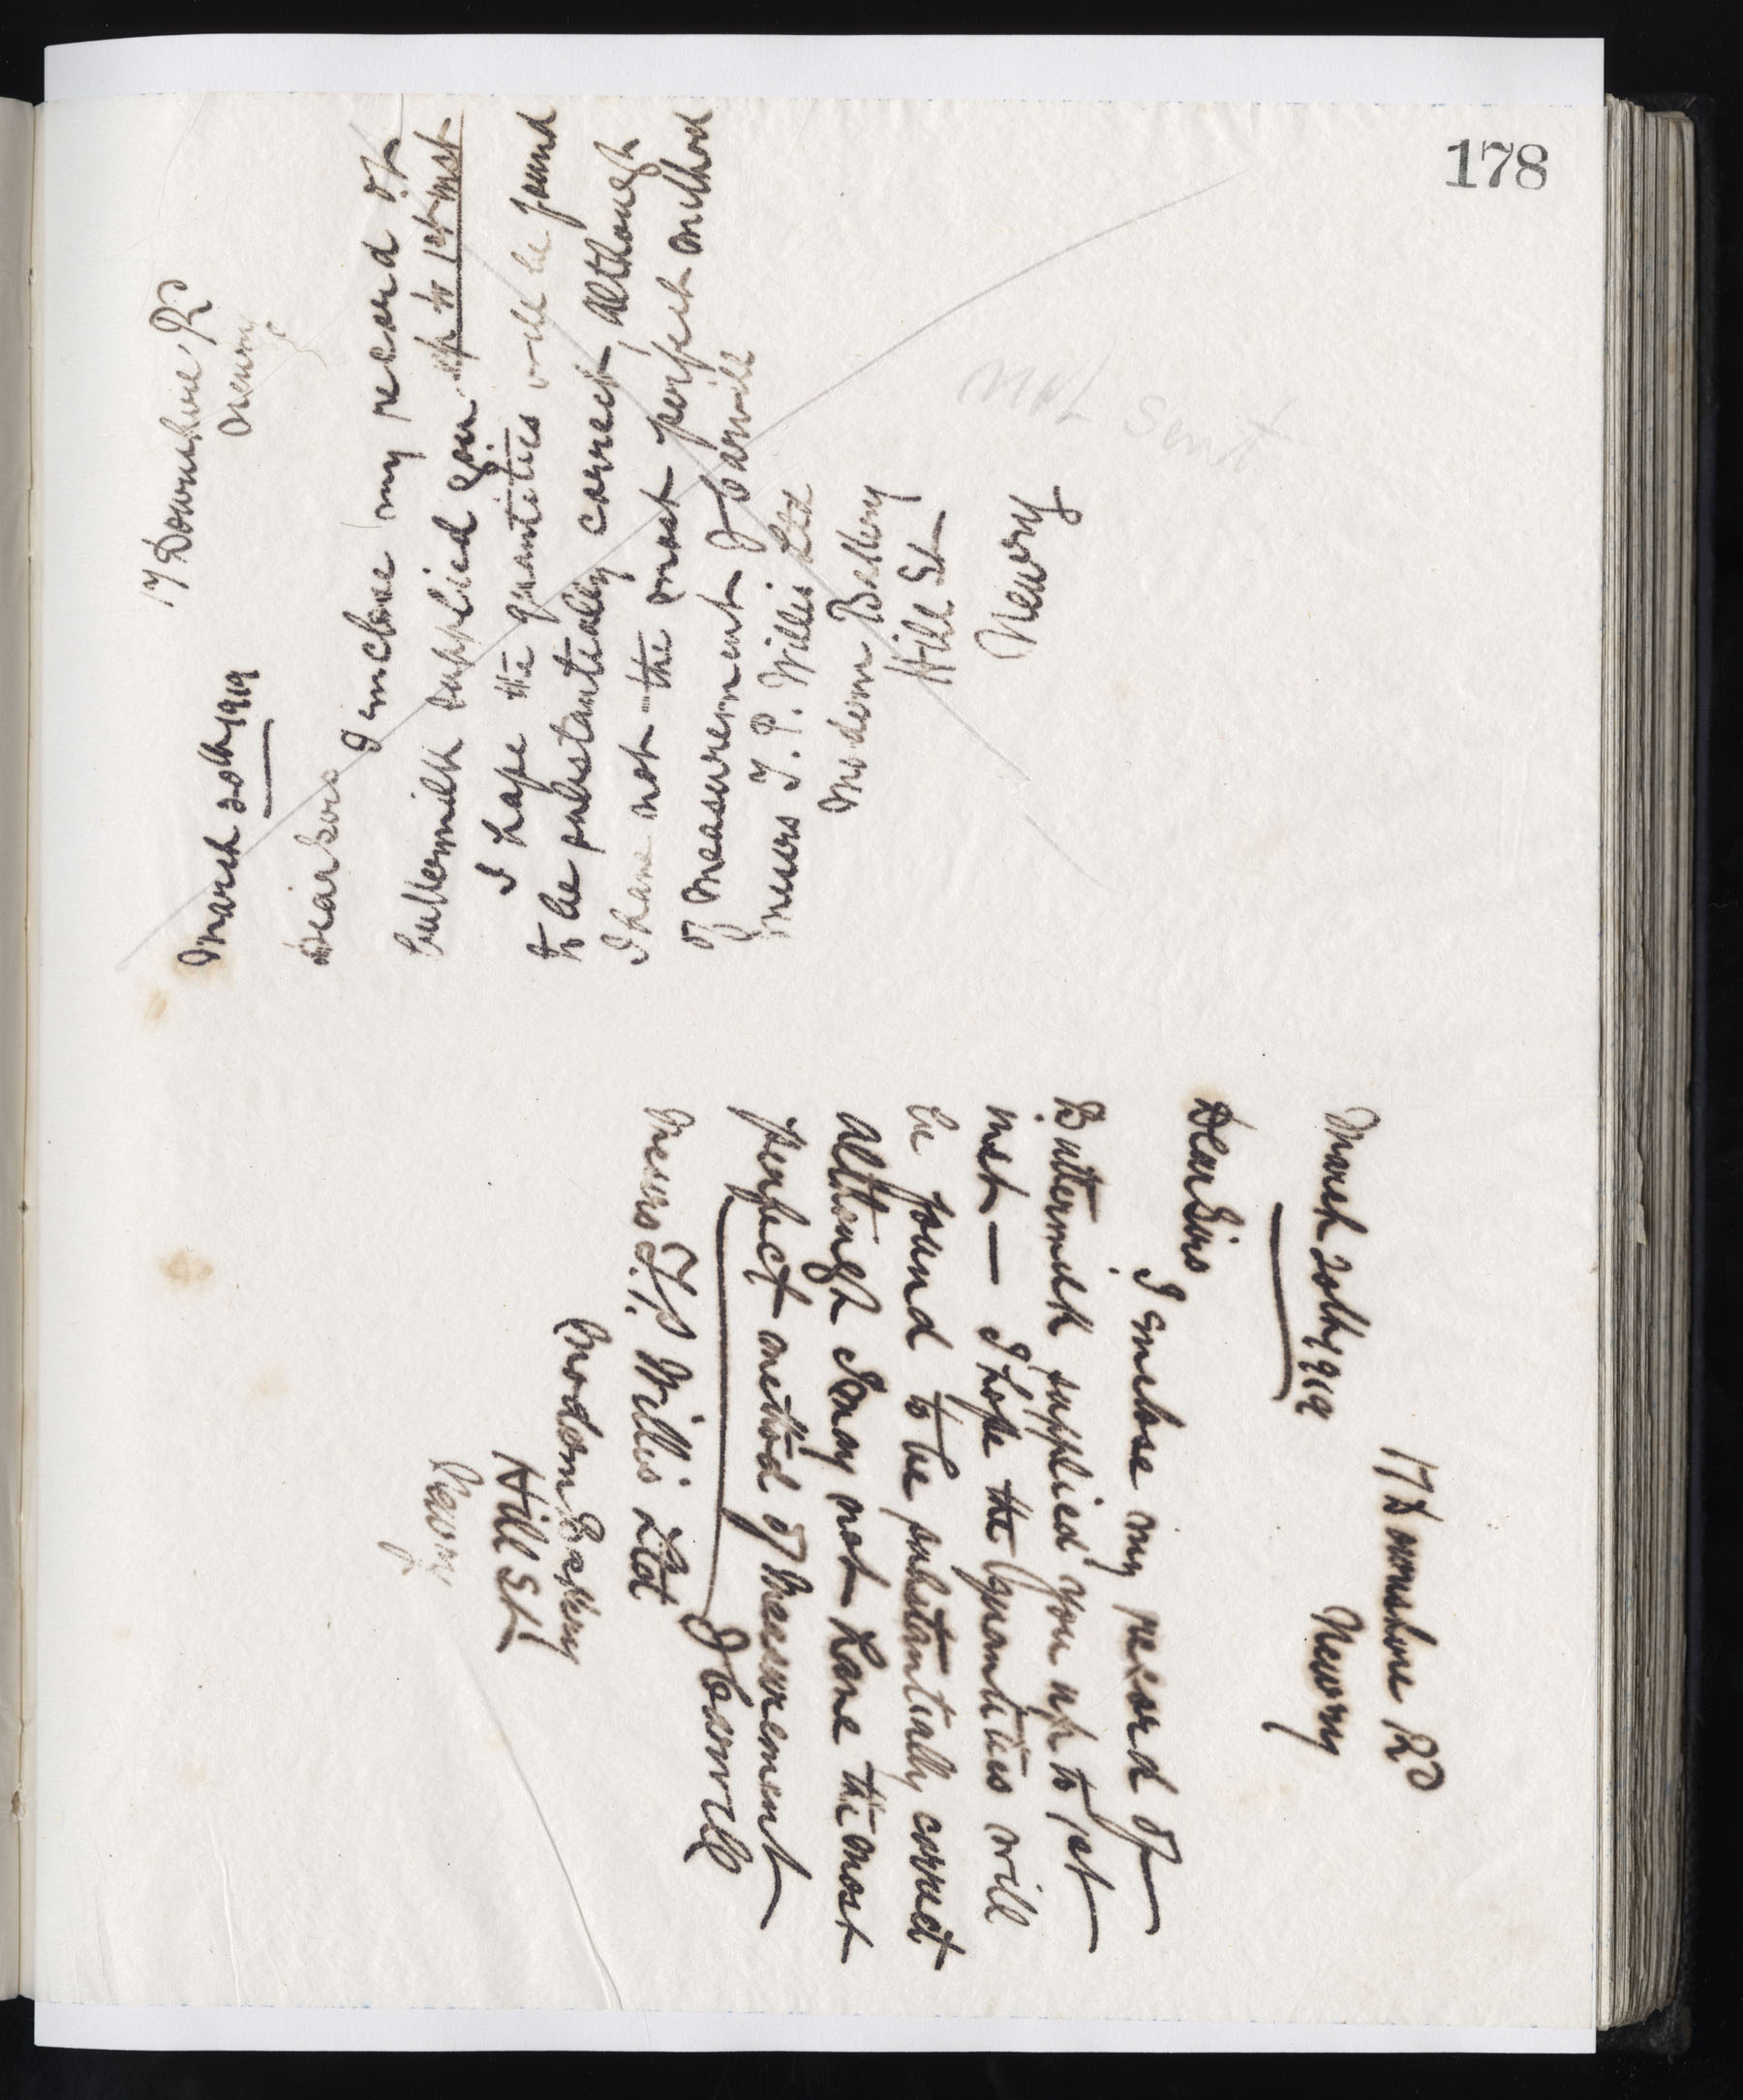 178
17 Downshire Rd
Newry
March 20th 1919
Dear Sirs
I enclose my record of
buttermilk supplied you up to 1st inst
I hope the quantities will be found
to be substantially correct, although
I have not the most perfect method
of measurement J
Messrs T. P. Willis Ltd
Modern Bakery
Hill St
Newry
not sent
17 Downshire Rd
Newry
March 20th 1919
Dear Sirs
I enclose my record of
Buttermilk supplied you up to 1st
inst — I hope the quantities will
be found to be substantially correct
although I may not have the most
perfect method of measurement
J
Messrs T. P. Willis Ltd
Modern Bakery
Hill St
Newry